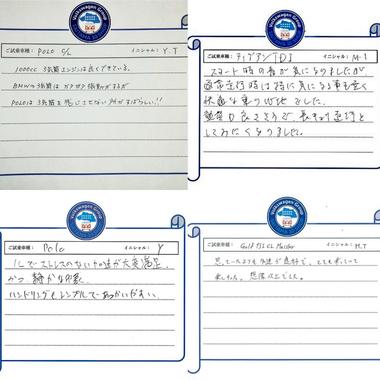 Volkswagen Group
ご試乗車種： POLO C/L イニシャル： Y.T
1000cc 3気筒エンジンは良くできている。
BMWの3気筒はガタガタ振動がするが
POLOは3気筒を感じさせない所がすばらしい!!
Volkswagen Group
ご試乗車種： ティグアンTDI イニシャル： M-1
スタート時の音が気になりましたが
通常走行時は特に気になる事も無く
快適な乗り心地でした。
燃費も良さそうで、長キョリ走行を
してみたくなりました。
Volkswagen Group
ご試乗車種： Polo イニシャル： Y
1Lでストレスのない加速が大変満足、
かつ静かな印象。
ハンドリングもシンプルであつかいやすい。
Volkswagen Group
ご試乗車種： Golf TDI CL Meister イニシャル： M.T
思っていたよりも加速が良好で、とても楽しくて
楽しかった。想像以上でした。